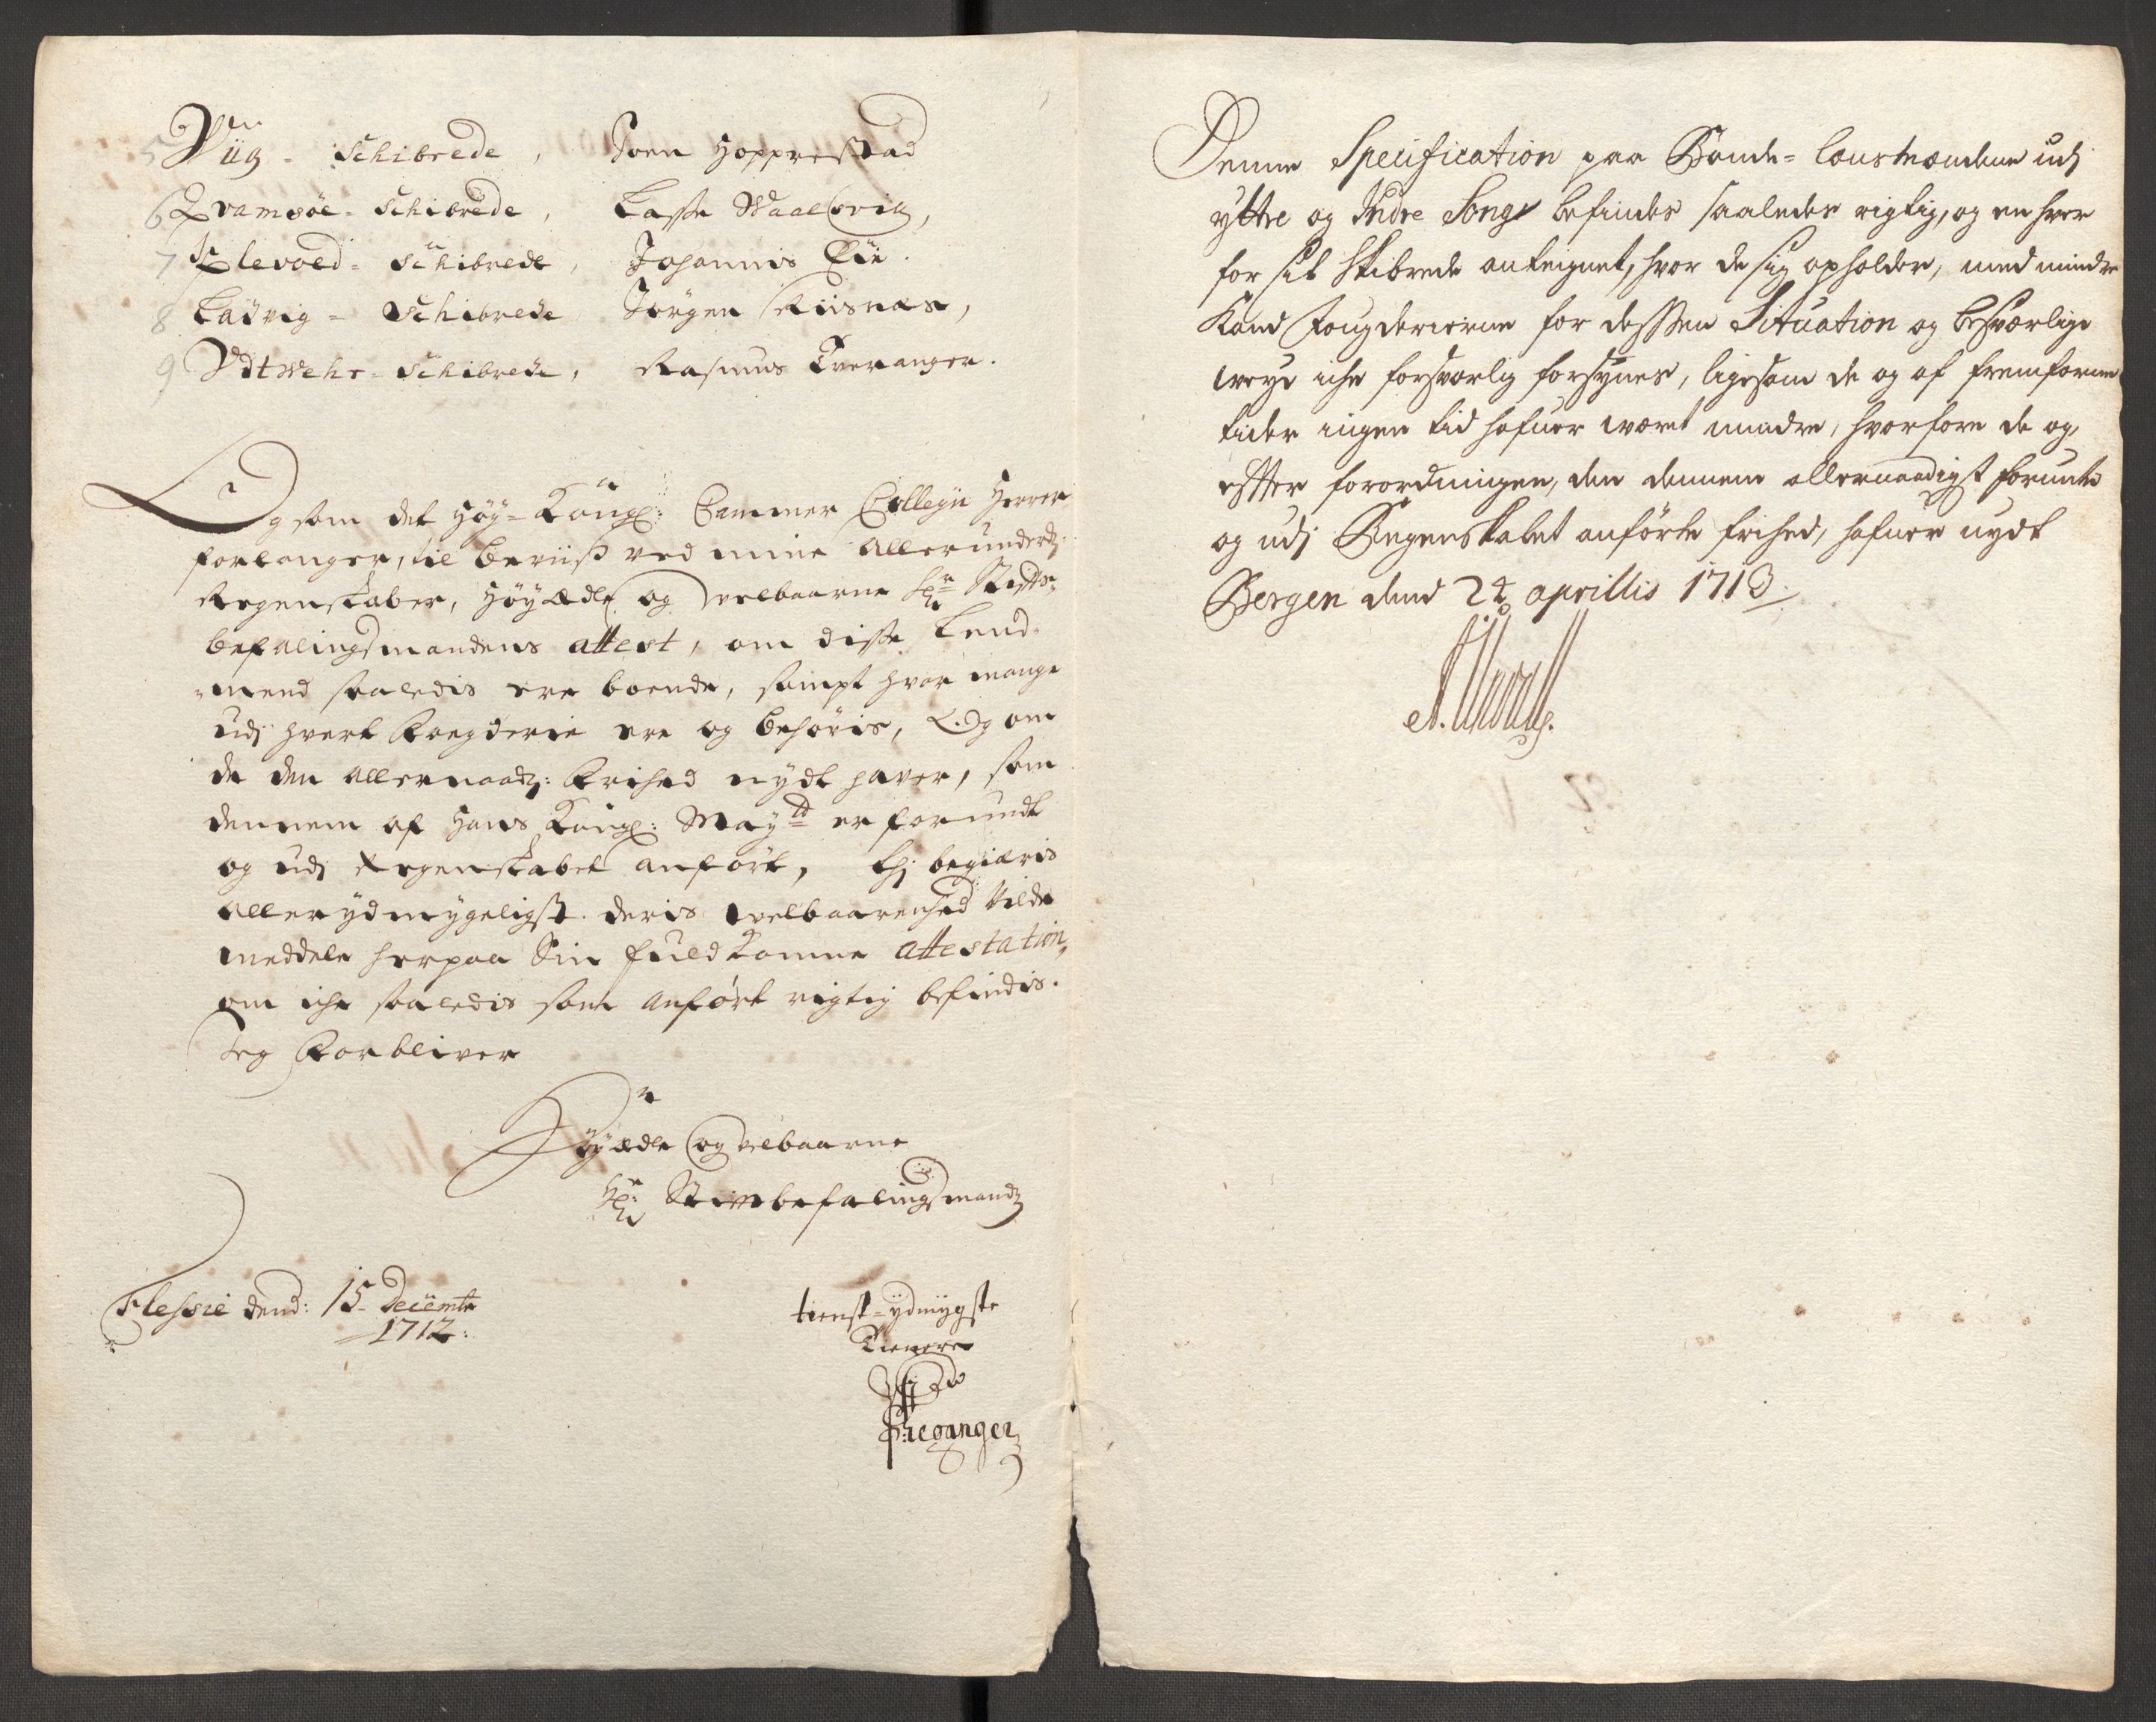 5 Viig - Schibrede, Joen Hopprestad
6 Qvamsøe - Schibrede, Lasse Waalsvig,
7 Klevold - Schibrede, Johannis Eie.
8 Ladvig - Schibrede Jørgen Riisnæs,
9 Udtwehr - Schibrede, Rasmus Tveranger.
Og som det Høy-Kongl: Cammer Collegii Herrer
forlanger, til beviiß ved mine Allerunderd:
Regenskaber, Høyædle og velbaarne Hr Stifts-
befalingsmandens attest, om disse Lend-
mend saaledis ere boende, sampt hvor mange
udj hvert Fogderie ere og behøvis, Og om
de den Allernaad: Frihed nydt haver, som
dennem af Hans Kongl: Mayt er forundt
og udj Regenskabet anført, thj begiæris
Allerydmygeligst deris Velbaarenhed vilde
meddele herpaa Sin fuldkomne attestation,
om iche saaledis som anført rigtig befindis.
Jeg Forbliver
Høyædle og velbaarne
Hr: Stiftsbefalingsmandz
Flessie dend: 15 Decembr
1712:
tienst-ydmygste
Tienere
Denne Specification paa Bonde-Lensmændene udj
yttre og Indre Sogn befindes saaledes rigtig, og en hver
for sit Skibrede antegnet, hvor de sig opholder, med mindre
Kand Fougderierne for dessen Situation og besværlige
veye iche forsvarlig forsynes, ligesom de og af fremfarne
tider ingen tid hafuer været mindre, hvorfore de og,
efter forordningen, den dennem allernaadigst forunte
og udj Regenskabet anførte frihed, hafuer nydt
Bergen dend 24 aprillis 1713.